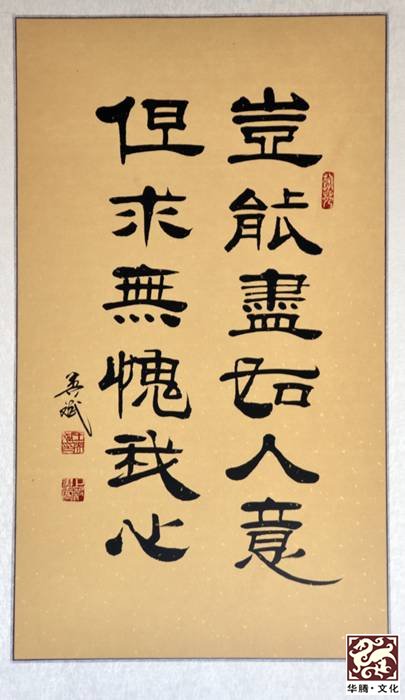 豈能盡如人意
但求無愧我心
华腾·文化